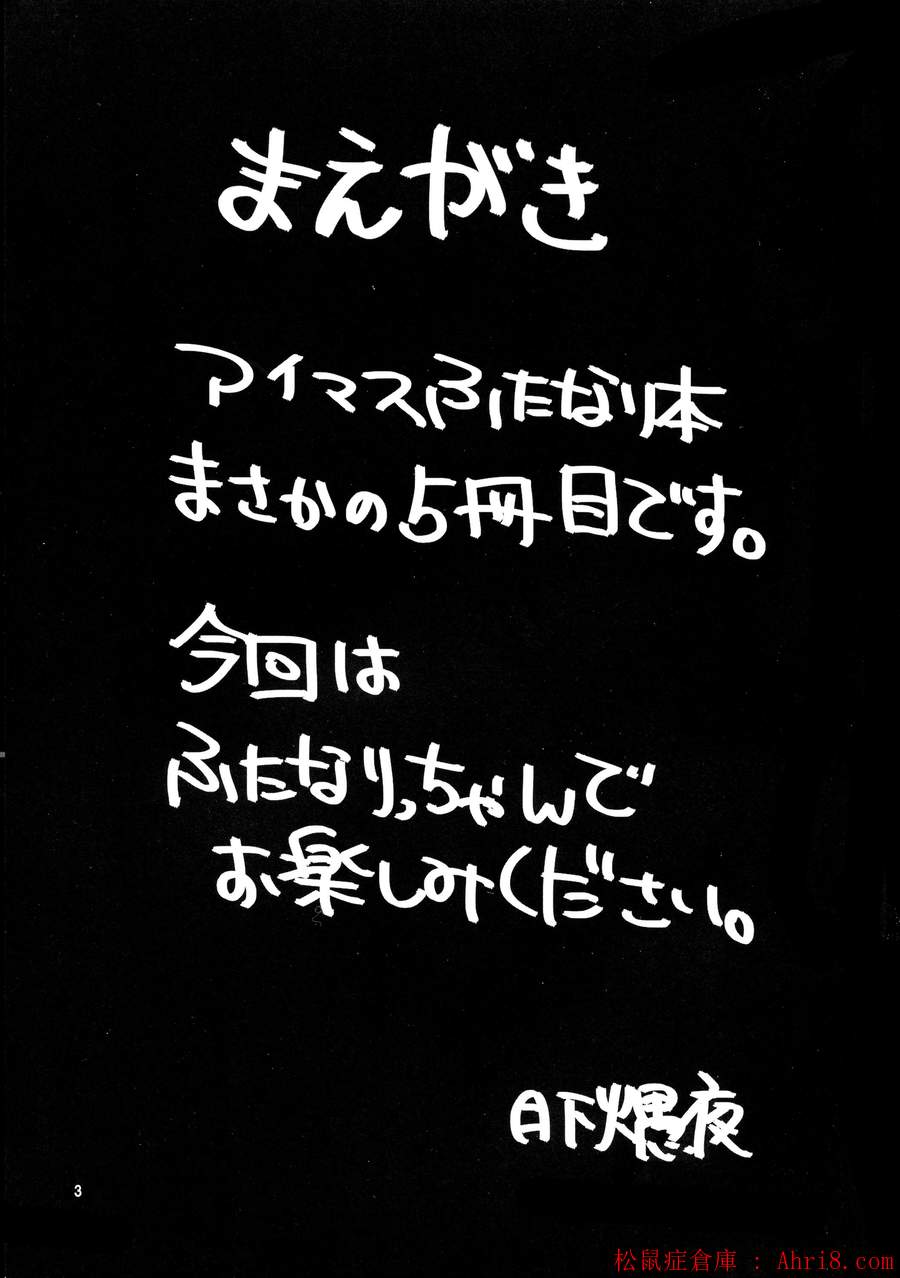 まえがき
アイマスふたなり本
まさかの5冊目です。
今回は
ふたなりっちゃんで
お楽しみください。
日下爆夜
3
松鼠症倉庫 : Ahri8.com